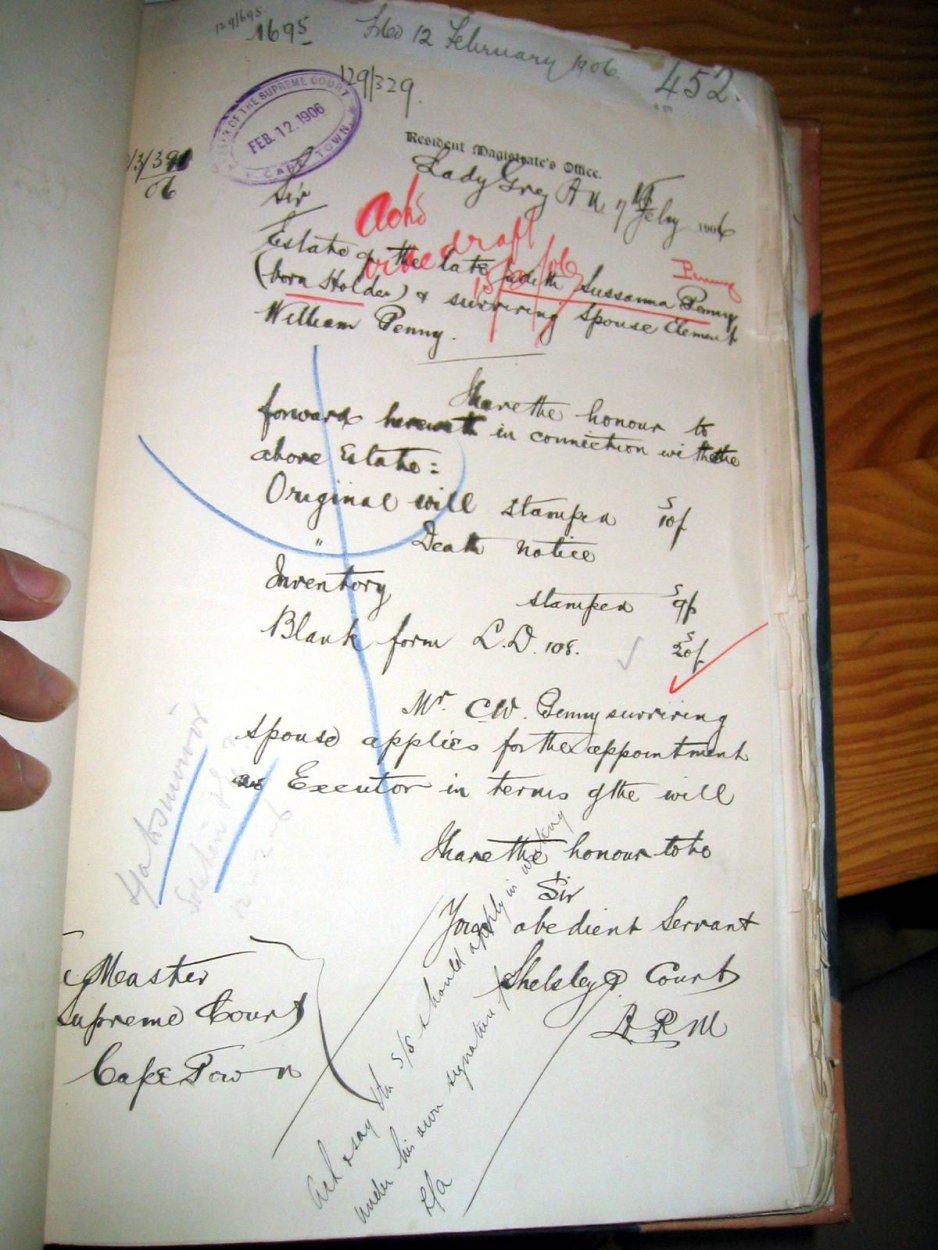 129/695
1695
Filed 12 February 1906.
452.
129/329.
OF THE SUPREME COURT
FEB. 12. 1906
CAPE TOWN
/3/39
06
Resident Magistrate's Office.
Lady Grey 7 Feby 1906
Sir
Ackd
draft
Penny
Estate of the late Sussanna Penny
(born Holder) & surviving Spouse Clement
William Penny.
I have the honour to
forward herewith in connection with the
above Estate:
Original will stamped 10/
" Death notice
Inventory stamped 9/
Blank form L.D. 108. 20/
Mr. C.W. Penny surviving
spouse applies for the appointment
as Executor in terms of the will
I have the honour to be
Sir
Your obedient Servant
Shelsley Court
A R M
Master
Supreme Court
Cape Town
Ack & say the s/s should apply in writing
under his own signature for
L/a